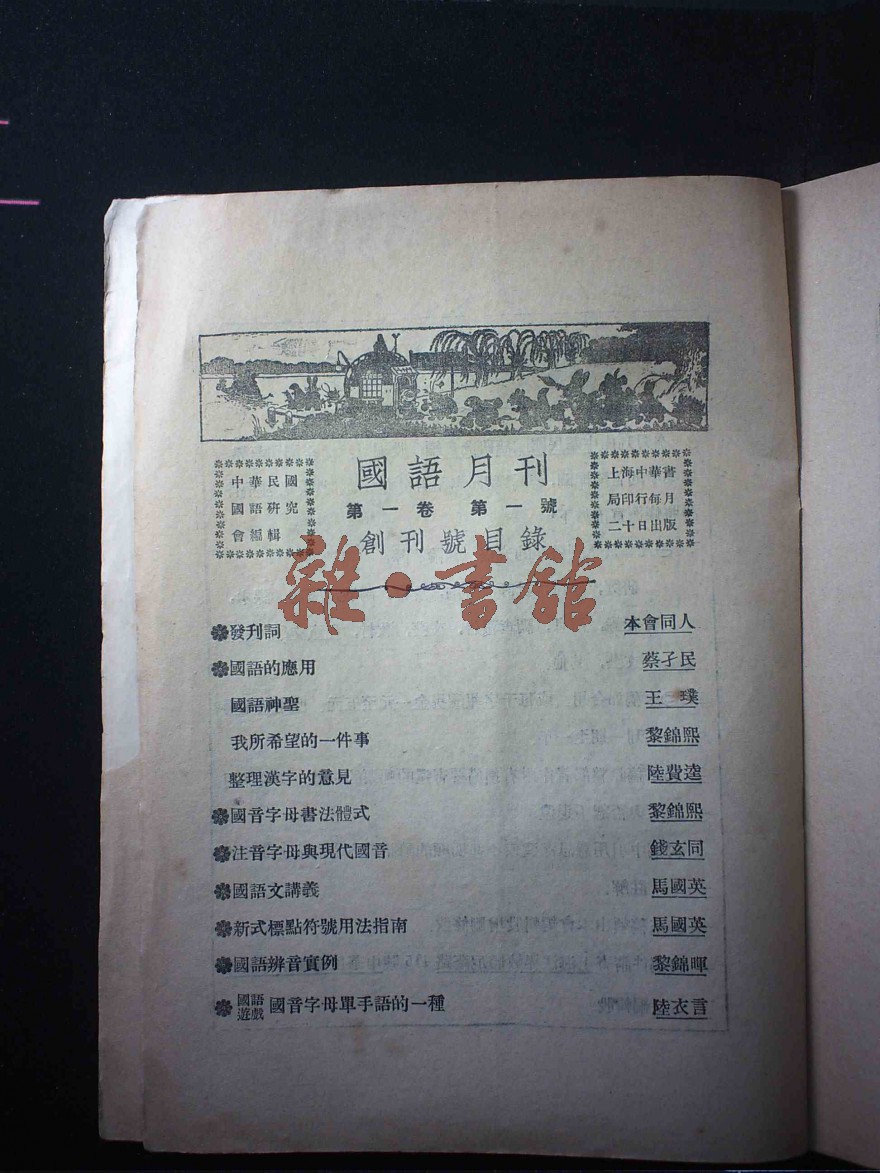 國語月刊
第一卷 第一號
創刊號目錄
中華民國
國語研究
會編輯
上海中華書
局印行每月
二十日出版
雜·書館
發刊詞 本會同人
國語的應用 蔡孑民
國語神聖 王璞
我所希望的一件事 黎錦熙
整理漢字的意見 陸費逵
國音字母書法體式 黎錦熙
注音字母與現代國音 錢玄同
國語文講義 馬國英
新式標點符號用法指南 馬國英
國語辨音實例 黎錦暉
國語遊戲 國音字母單手語的一種 陸衣言